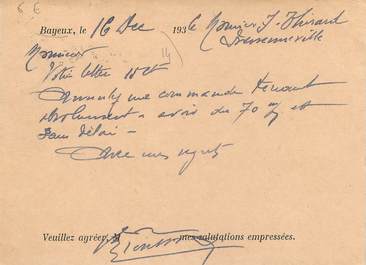 6 E
Bayeux, le 16 Dec 1936 Monsieur J. Thirard
Monsieur
Votre lettre 15 ct
14
Annulez ma commande tenant
absolument à avoir du 70 et
sans délai –
Avec mes regrets
Veuillez agréer, M mes salutations empressées.